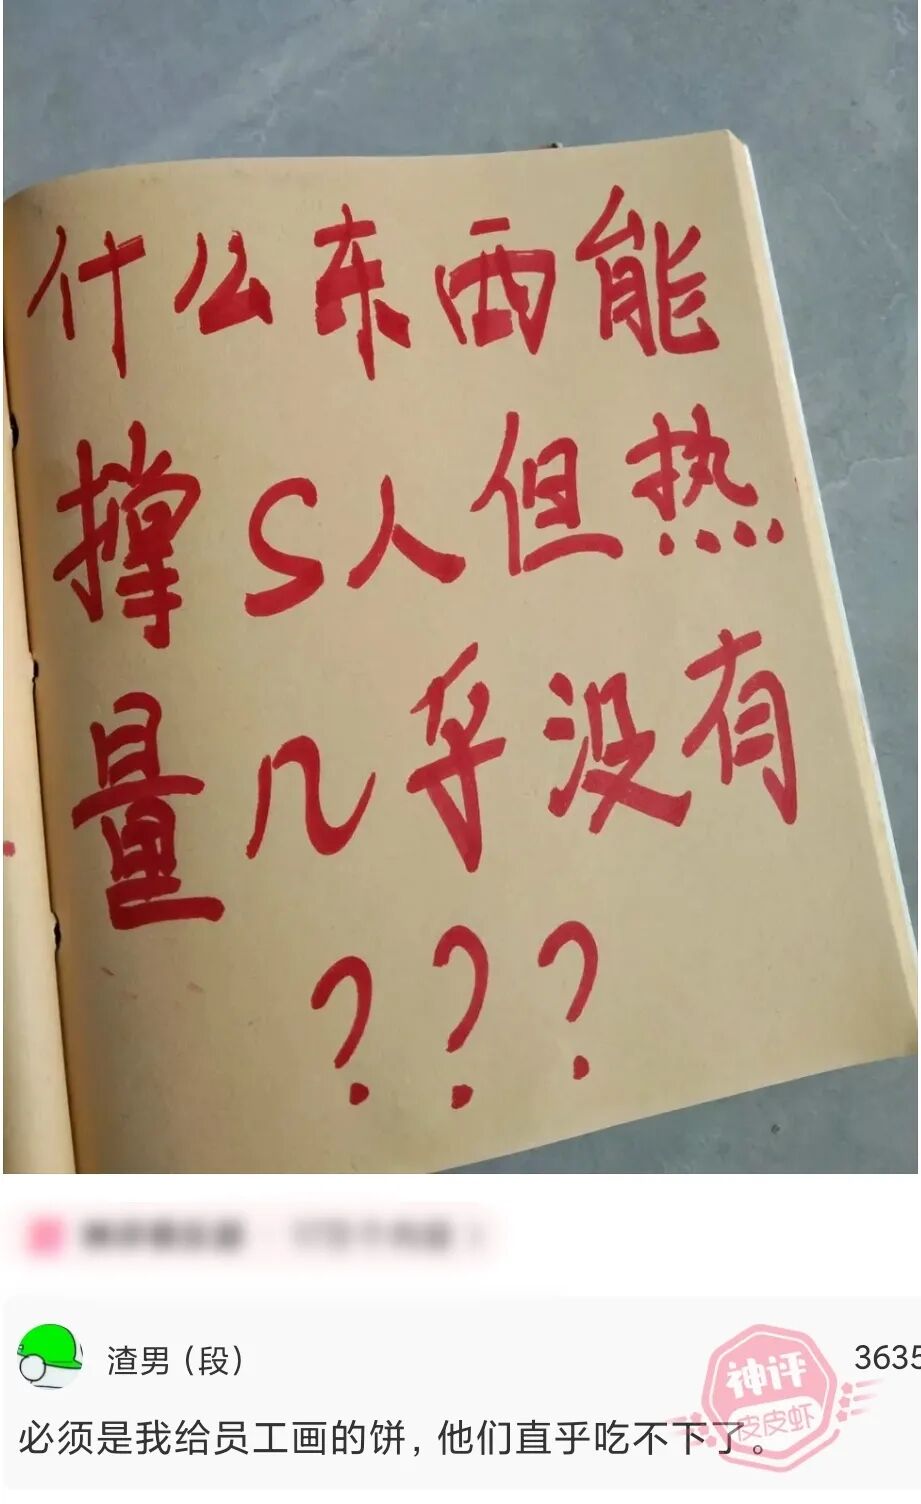 什么东西能
撑S人但热
量几乎没有
???
渣男(段)
3635
神评
皮皮虾
必须是我给员工画的饼,他们直乎吃不下了。